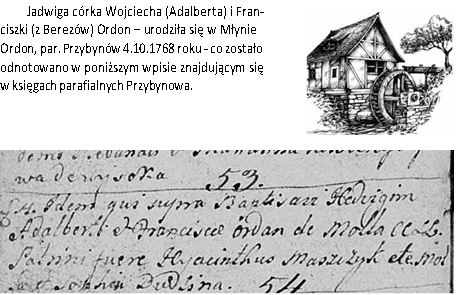 Jadwiga córka Wojciecha (Adalberta) i Fran-
ciszki (z Berezów) Ordon – urodziła się w Młynie
Ordon, par. Przybynów 4.10.1768 roku - co zostało
odnotowano w poniższym wpisie znajdującym się
w księgach parafialnych Przybynowa.
53.
4. Idem qui supra Baptisavi Hedvigim
Adalberti & Francisce Ordan de Molla
Patrini fuere Hyacinthus Maszczyk de Mol
& Sophia Dudlina. 54